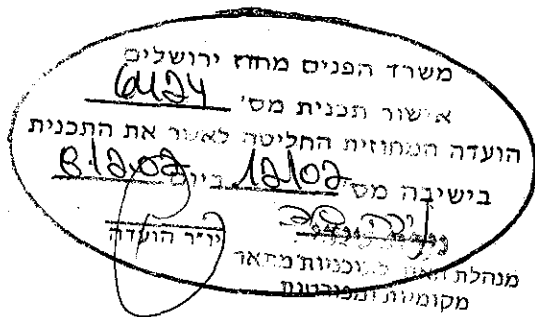 משרד הפנים מחוז ירושלים
אישור תכנית מס' 6124
הועדה המחוזית החליטה לאשר את התכנית
בישיבה מס' 12/02 ביום 8.12.02
יו"ר הועדה
מנהלת האגף לתוכניות מתאר
מקומיות ומפורטות